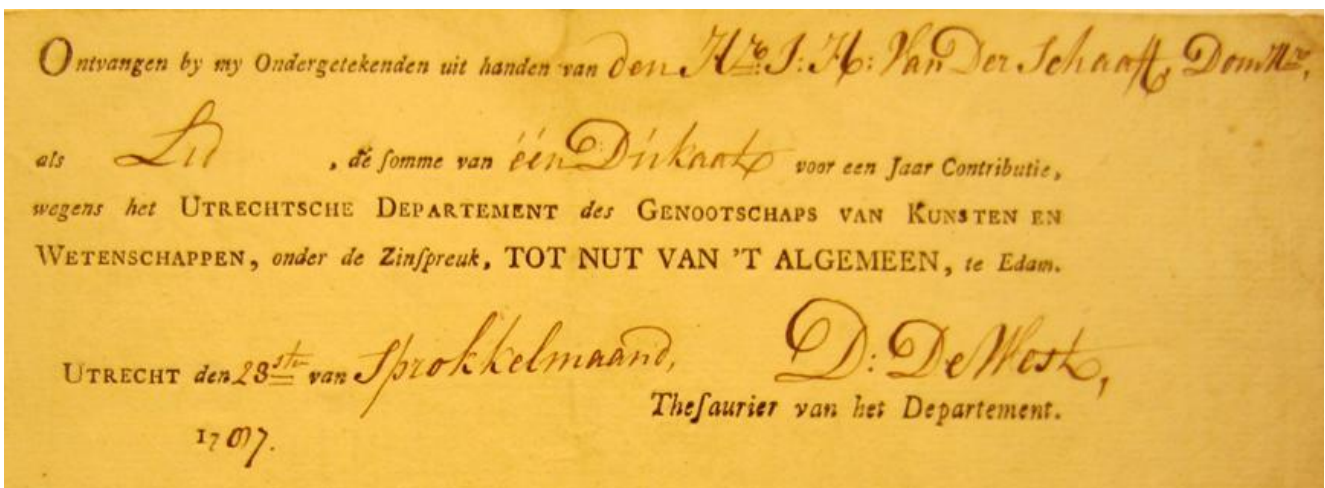 Ontvangen by my Ondergetekenden uit handen van den Hr: J: H: Van Der Schaaff, Dom Mr,
als Lid , de somme van één Dukaat voor een Jaar Contributie,
wegens het UTRECHTSCHE DEPARTEMENT des GENOOTSCHAPS VAN KUNSTEN EN
WETENSCHAPPEN, onder de Zinspreuk, TOT NUT VAN 'T ALGEMEEN, te Edam.
UTRECHT den 28sten van Sprokkelmaand, D: De West,
Thesaurier van het Departement.
1787.